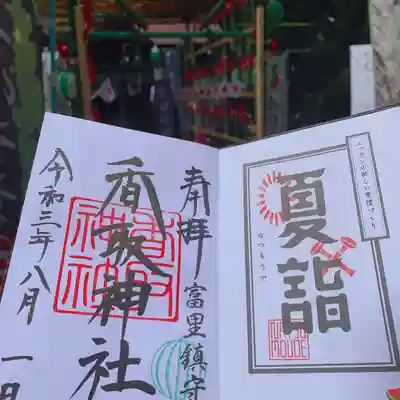 奉拝
富里鎮守
香取神社
令和三年八月一日
ニッポンの新しい習慣づくり
夏詣
なつもうで
NATSU
MOUDE